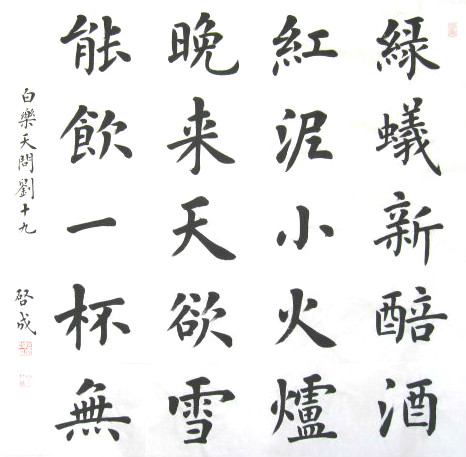 緑蟻新醅酒
紅泥小火爐
晩来天欲雪
能飲一杯無
白樂天問劉十九
啓成